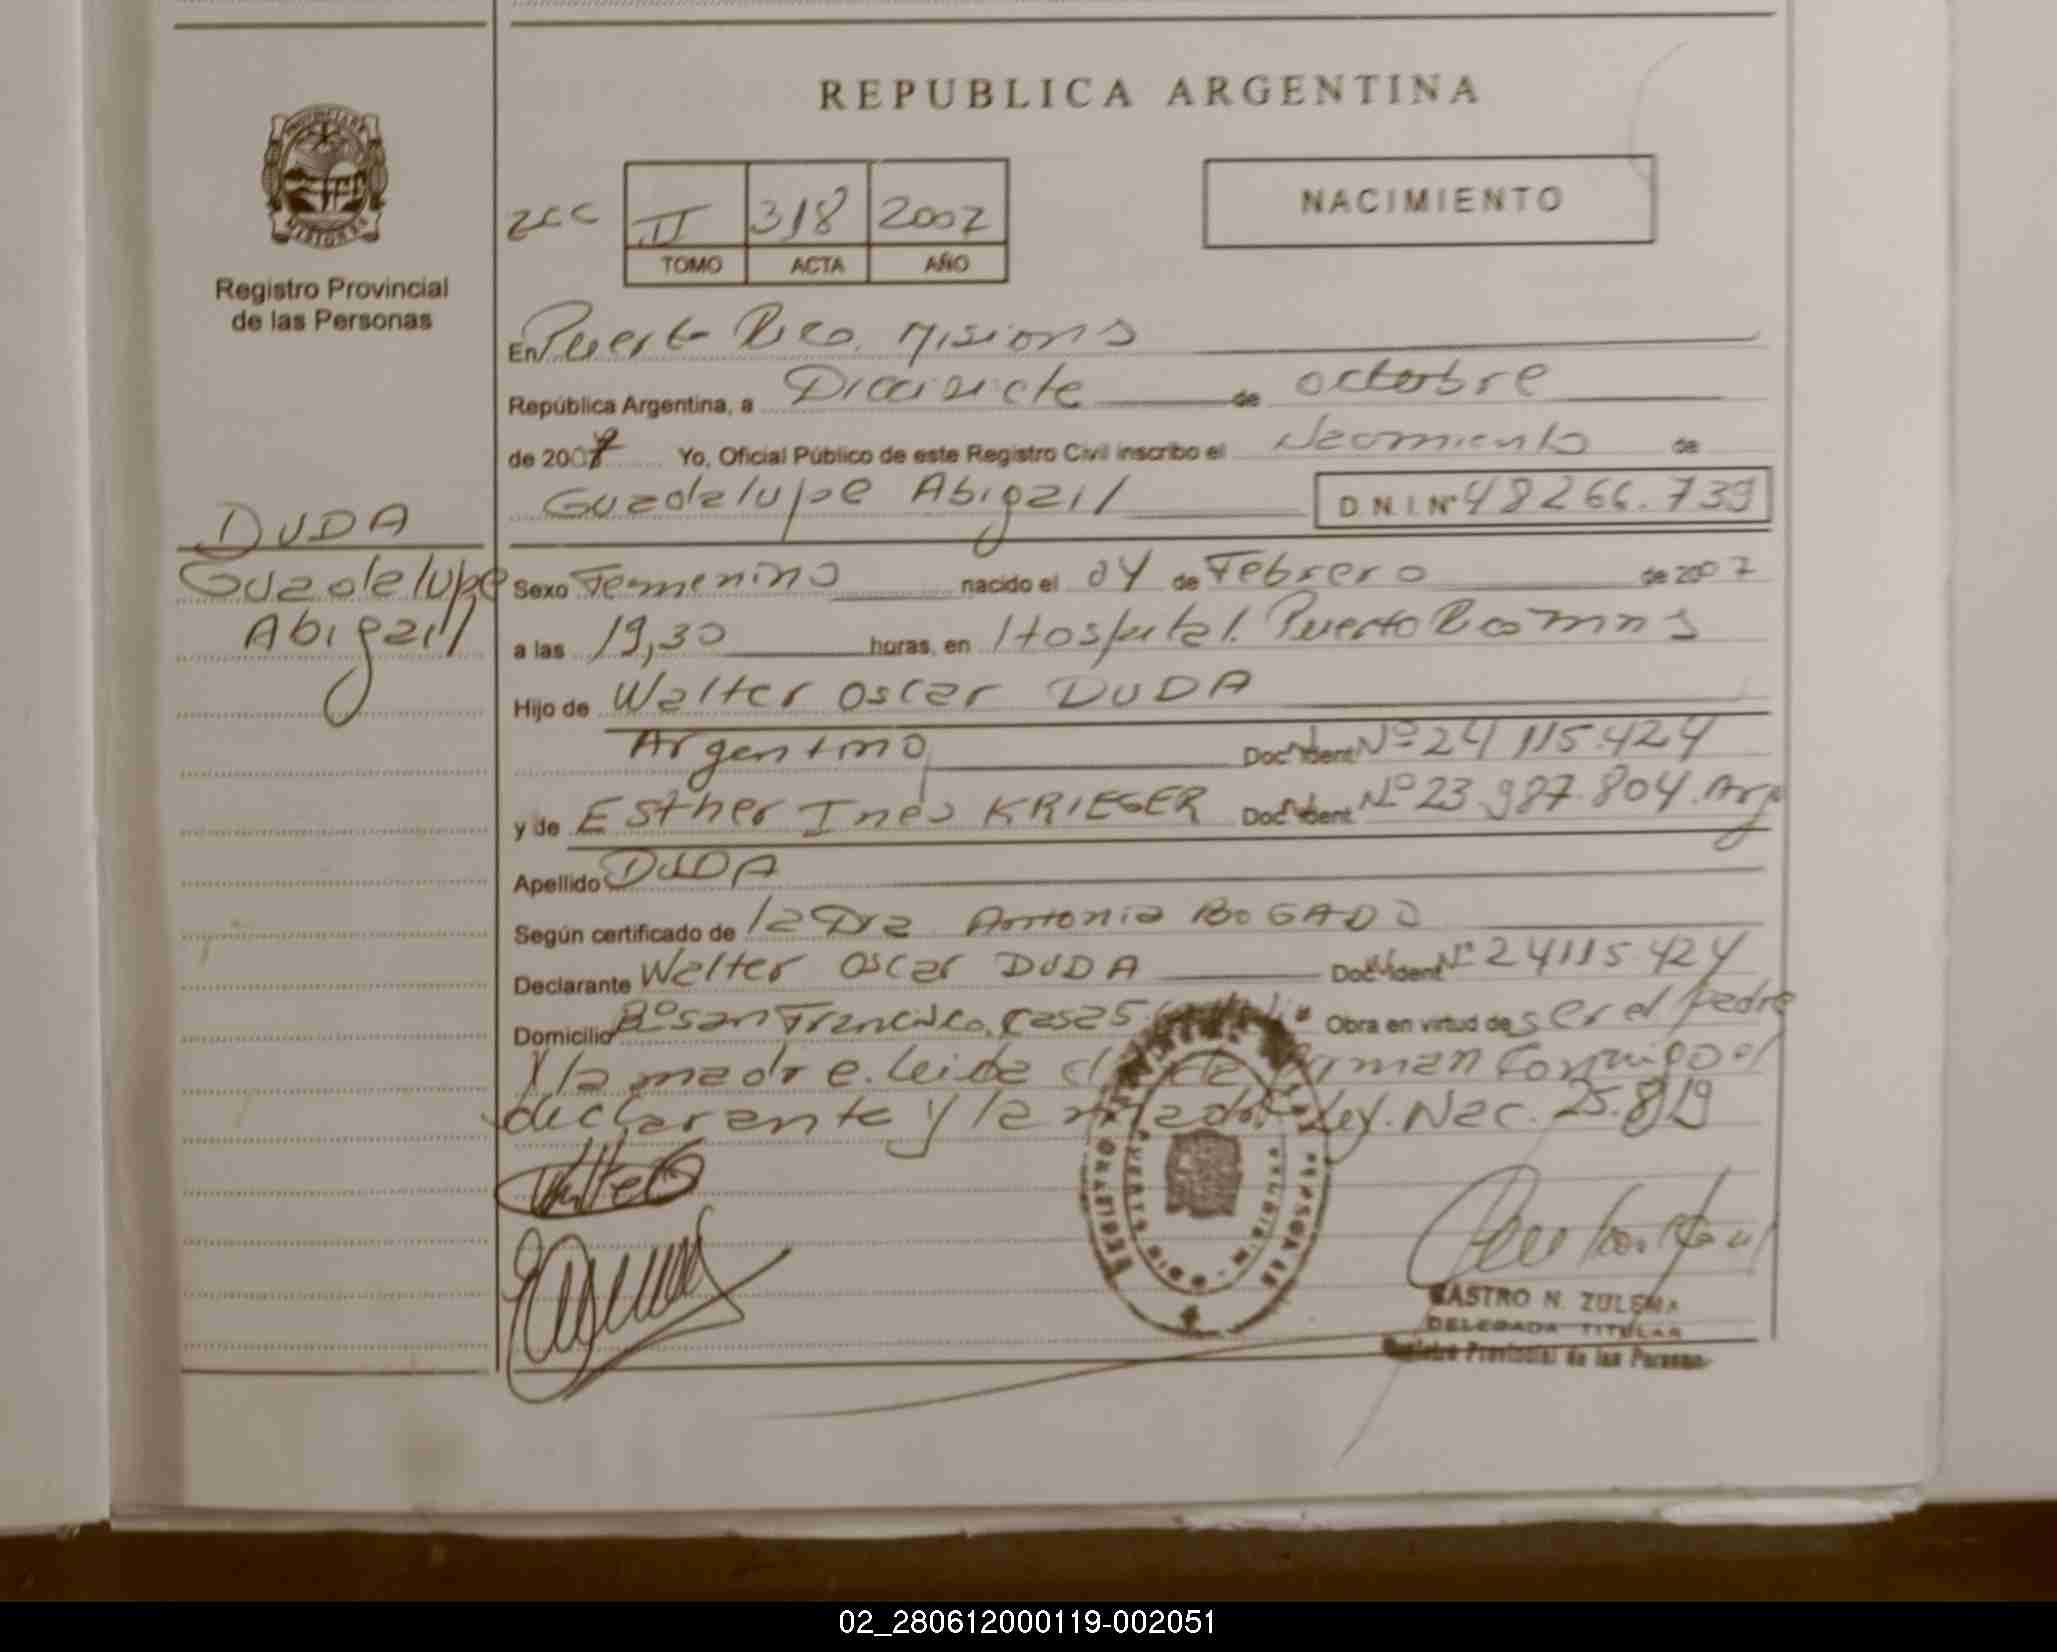 REPUBLICA ARGENTINA
PROVINCIA DE MISIONES
Registro Provincial
de las Personas
II 318 2007
TOMO ACTA AÑO
NACIMIENTO
En Puerto Rico, Misions
República Argentina, a Diecisiete de octubre
de 2007 Yo, Oficial Público de este Registro Civil inscribo el Nacimiento de
Guadalupe Abigail D.N.I. Nº 48266.739
DUDA
Guadalupe
Abigail
Sexo Femenino nacido el 04 de Febrero de 2007
a las 19,30 horas, en Hospital. Puerto Rico
Hijo de Walter Oscar DUDA
Argentino Doc. Ident. Nº 24 115.424
y de Esther Inés KRIEGER Doc. Ident. Nº 23.987.804. Arg
Apellido DUDA
Según certificado de la Dra Antonia BOGADO
Declarante Walter Oscar DUDA Doc. Ident. Nº 24115424
Domicilio Bº San Francisco, casa 5 Obra en virtud de ser el padre
y la madre. Leida el firman conmigo el
declarante y la madre. Ley. Nac. 25.819
CASTRO N. ZULEMA
DELEGADA TITULAR
Registro Provincial de las Personas
02_280612000119-002051